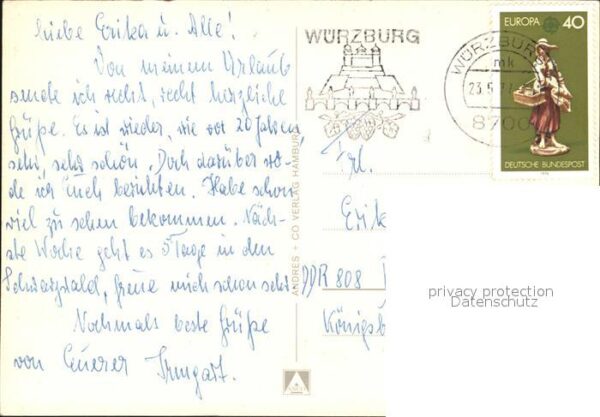 Liebe Erika u. Alle!
Von meinem Urlaub
sende ich recht, recht herzliche
Grüße. Es ist wieder, wie vor 20 Jahren,
sehr, sehr schön. Doch darüber wer-
de ich Euch berichten. Habe schon
viel zu sehen bekommen. Näch-
ste Woche geht es 5 Tage in den
Schwarzwald, freue mich schon sehr.
Nochmals beste Grüße
von Euerer Irmgart.
ANDRES + CO VERLAG HAMBURG
WÜRZBURG
WÜRZBURG
mk
23.5.77
8700
EUROPA 40
DEUTSCHE BUNDESPOST
1976
Frl.
Erik
DDR 808
Königsb
privacy protection
Datenschutz